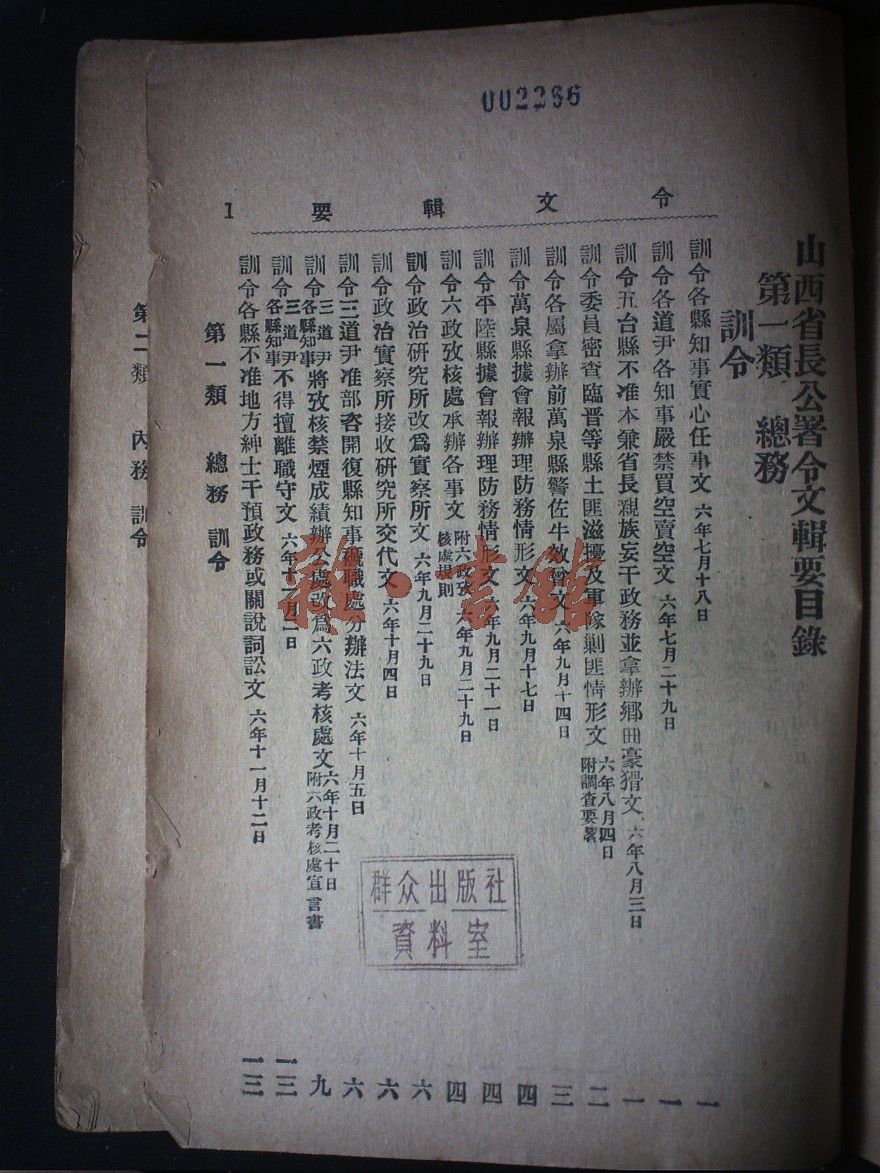 002266
山西省長公署令文輯要目錄
第一類 總務
訓令
訓令各縣知事實心任事文 六年七月十八日 一
訓令各道尹各知事嚴禁買空賣空文 六年七月二十九日 一
訓令五台縣不准本兼省長親族妄干政務並拿辦鄉曲豪猾文 六年八月三日 一
訓令委員密查臨晋等縣土匪滋擾及軍隊剿匪情形文 六年八月四日 附調查要署 二
訓令各屬拿辦前萬泉縣警佐牛效曾文 六年九月十四日 三
訓令萬泉縣據會報辦理防務情形文 六年九月十七日 四
訓令平陸縣據會報辦理防務情形文 六年九月二十一日 四
訓令六政攷核處承辦各事文 附六政攷核處規則 六年九月二十九日 四
訓令政治研究所改爲實察所文 六年九月二十九日 六
訓令政治實察所接收研究所交代文 六年十月四日 六
訓令三道尹准部咨開復縣知事褫職處分辦法文 六年十月五日 六
訓令三道尹各縣知事將攷核禁煙成績辦公處改爲六政考核處文 六年十月二十日 附六政考核處宣言書 九
訓令三道尹各縣知事不得擅離職守文 六年十一月二日 一三
訓令各縣不准地方紳士干預政務或關說詞訟文 六年十一月十二日 一三
令文輯要 1
第一類 總務 訓令
第二類 內務 訓令
群众出版社
資料室
雜·書館